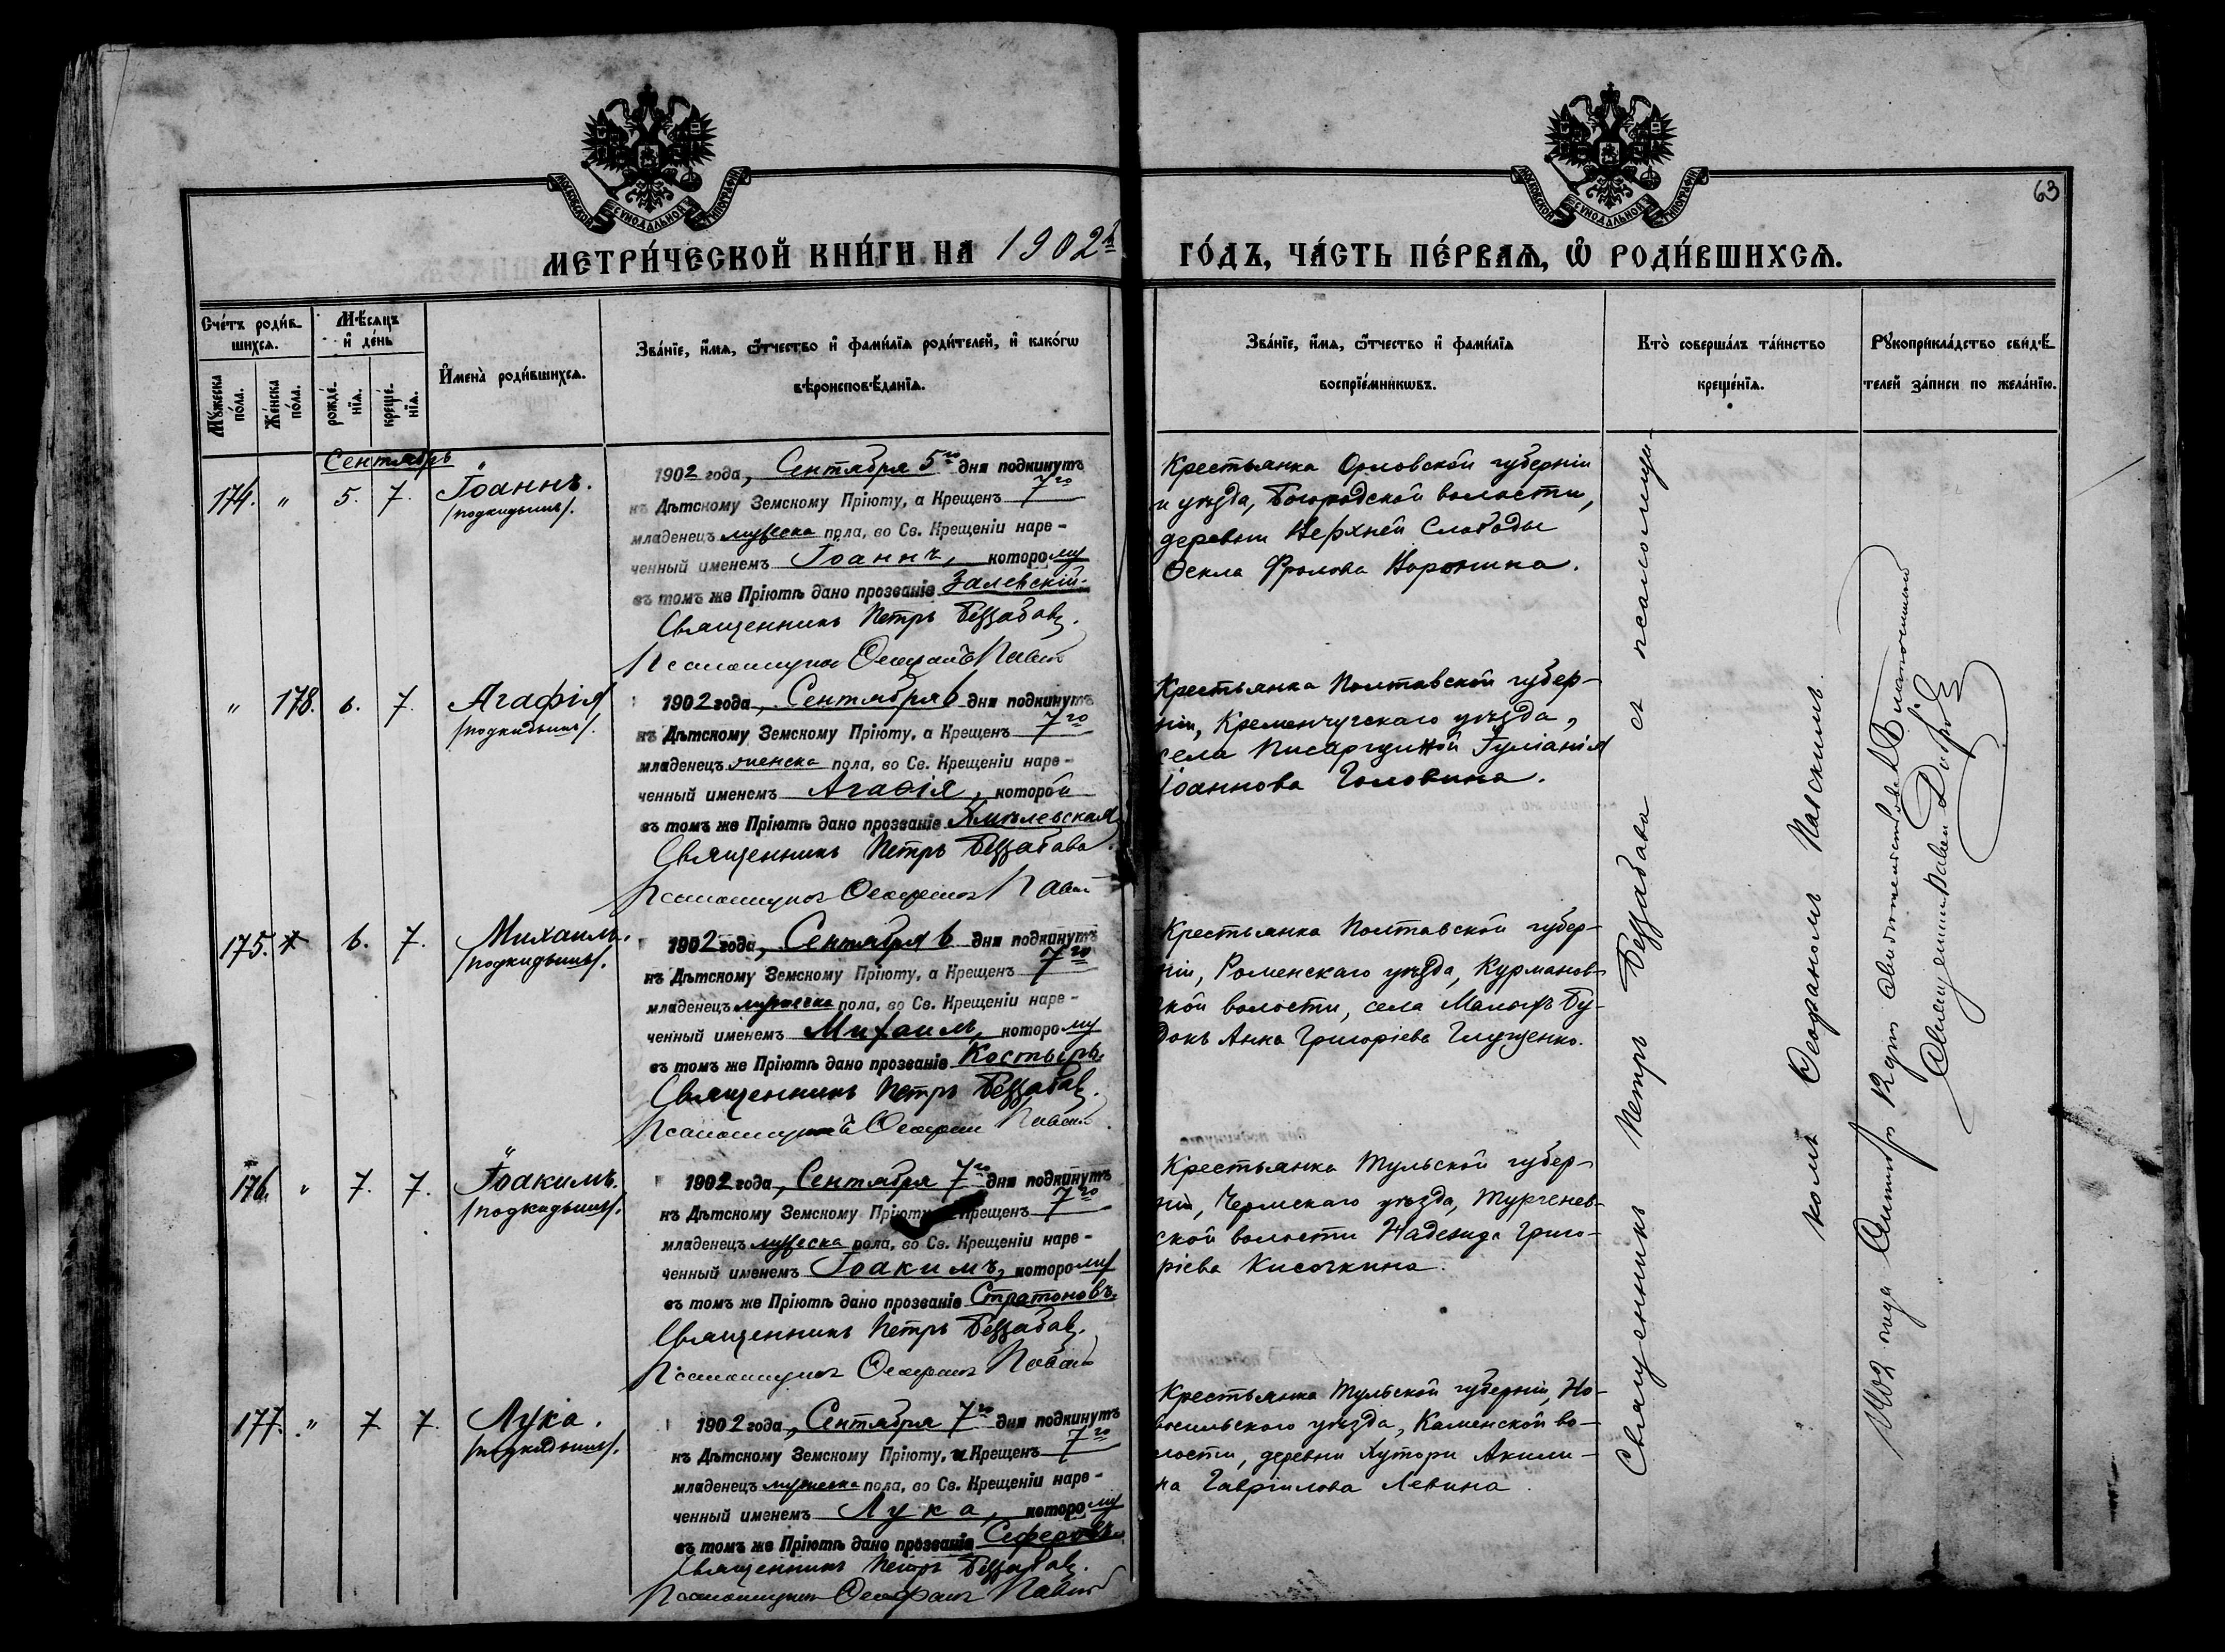 63
МОСКОВСКОЙ СѴНОДАЛЬНОЙ ТИПОГРАФІИ
МОСКОВСКОЙ СѴНОДАЛЬНОЙ ТИПОГРАФІИ
МЕТРИ́ЧЕСКОЙ КНИ́ГИ НА 1902й ГО́ДЪ, ЧА́СТЬ ПЕ́РВАѦ, Ѡ҆ РОДИ́ВШИХСѦ.
Сче́тъ роди́в-
шихсѧ.
Мꙋ́жеска
по́ла.
Же́нска
по́ла.
Мѣ́сѧцъ
и҆ де́нь
рожде́-
нїѧ.
креще́-
нїѧ.
И҆мена̀ роди́вшихсѧ.
Зва́нїе, и҆́мѧ, ѻ҆́тчество и҆ фами́лїѧ роди́телей, и҆ како́гѡ
вѣроисповѣ́данїѧ.
Зва́нїе, и҆́мѧ, ѻ҆́тчество и҆ фами́лїѧ
воспрїе́мникѡвъ.
Кто̀ соверша́лъ та́инство
креще́нїѧ.
Рꙋкоприкла́дство свидѣ́-
телей за́писи по жела́нїю.
Сентябрь
174. " 5. 7. Іоаннъ.
/подкидышъ/.
1902 года, Сентября 5го дня подкинутъ
къ Дѣтскому Земскому Пріюту, а Крещенъ 7го
младенецъ мужеска пола, во Св. Крещеніи наре-
ченный именемъ Іоаннъ, которому
въ томъ же Пріютѣ дано прозваніе Залевскій.
Священникъ Петръ Беззабава.
Псаломщикъ Ѳеофанъ
Крестьянка Орловской губерніи
и уѣзда, Богородской волости,
деревни Верхней Слободы
Ѳекла Фролова Воронина.
" 178. 6. 7. Агафія
/подкидышъ/.
1902 года, Сентября 6 дня подкинутъ
къ Дѣтскому Земскому Пріюту, а Крещенъ 7го
младенецъ женска пола, во Св. Крещеніи наре-
ченный именемъ Агаѳія, которой
въ томъ же Пріютѣ дано прозваніе Хмѣлевская
Священникъ Петръ Беззабава.
Псаломщикъ Ѳеофанъ
Крестьянка Полтавской губер-
ніи, Кременчугскаго уѣзда,
села Іуліанія
Іоаннова Головина.
175. 6. 7. Михаилъ.
/подкидышъ/.
1902 года, Сентября 6 дня подкинутъ
къ Дѣтскому Земскому Пріюту, а Крещенъ 7го
младенецъ мужеска пола, во Св. Крещеніи наре-
ченный именемъ Михаилъ, которому
въ томъ же Пріютѣ дано прозваніе Костырь.
Священникъ Петръ Беззабава.
Псаломщикъ Ѳеофанъ
Крестьянка Полтавской губер-
ніи, Роменскаго уѣзда, Курманов-
ской волости, села Малыхъ Бу-
докъ Анна Григоріева Глущенко.
176. " 7. 7. Іоакимъ.
/подкидышъ/.
1902 года, Сентября 7го дня подкинутъ
къ Дѣтскому Земскому Пріюту, Крещенъ 7го
младенецъ мужеска пола, во Св. Крещеніи наре-
ченный именемъ Іоакимъ, которому
въ томъ же Пріютѣ дано прозваніе Стратоновъ.
Священникъ Петръ Беззабава.
Псаломщикъ Ѳеофанъ
Крестьянка Тульской губер-
ніи, Чернскаго уѣзда, Тургенев-
ской волости Надежда Григо-
ріева Кисочкина.
177. " 7. 7. Лука.
/подкидышъ/.
1902 года, Сентября 7го дня подкинутъ
къ Дѣтскому Земскому Пріюту, а Крещенъ 7го
младенецъ мужеска пола, во Св. Крещеніи наре-
ченный именемъ Лука, которому
въ томъ же Пріютѣ дано прозваніе
Священникъ Петръ Беззабава.
Псаломщикъ Ѳеофанъ
Крестьянка Тульской губерніи, Но-
восильскаго уѣзда, Каменской во-
лости, деревни Хутори Акили-
на Гавріилова Левина.
Священникъ Петръ Беззабава съ псаломщи-
комъ Ѳеофаномъ
1902 года 12 дня